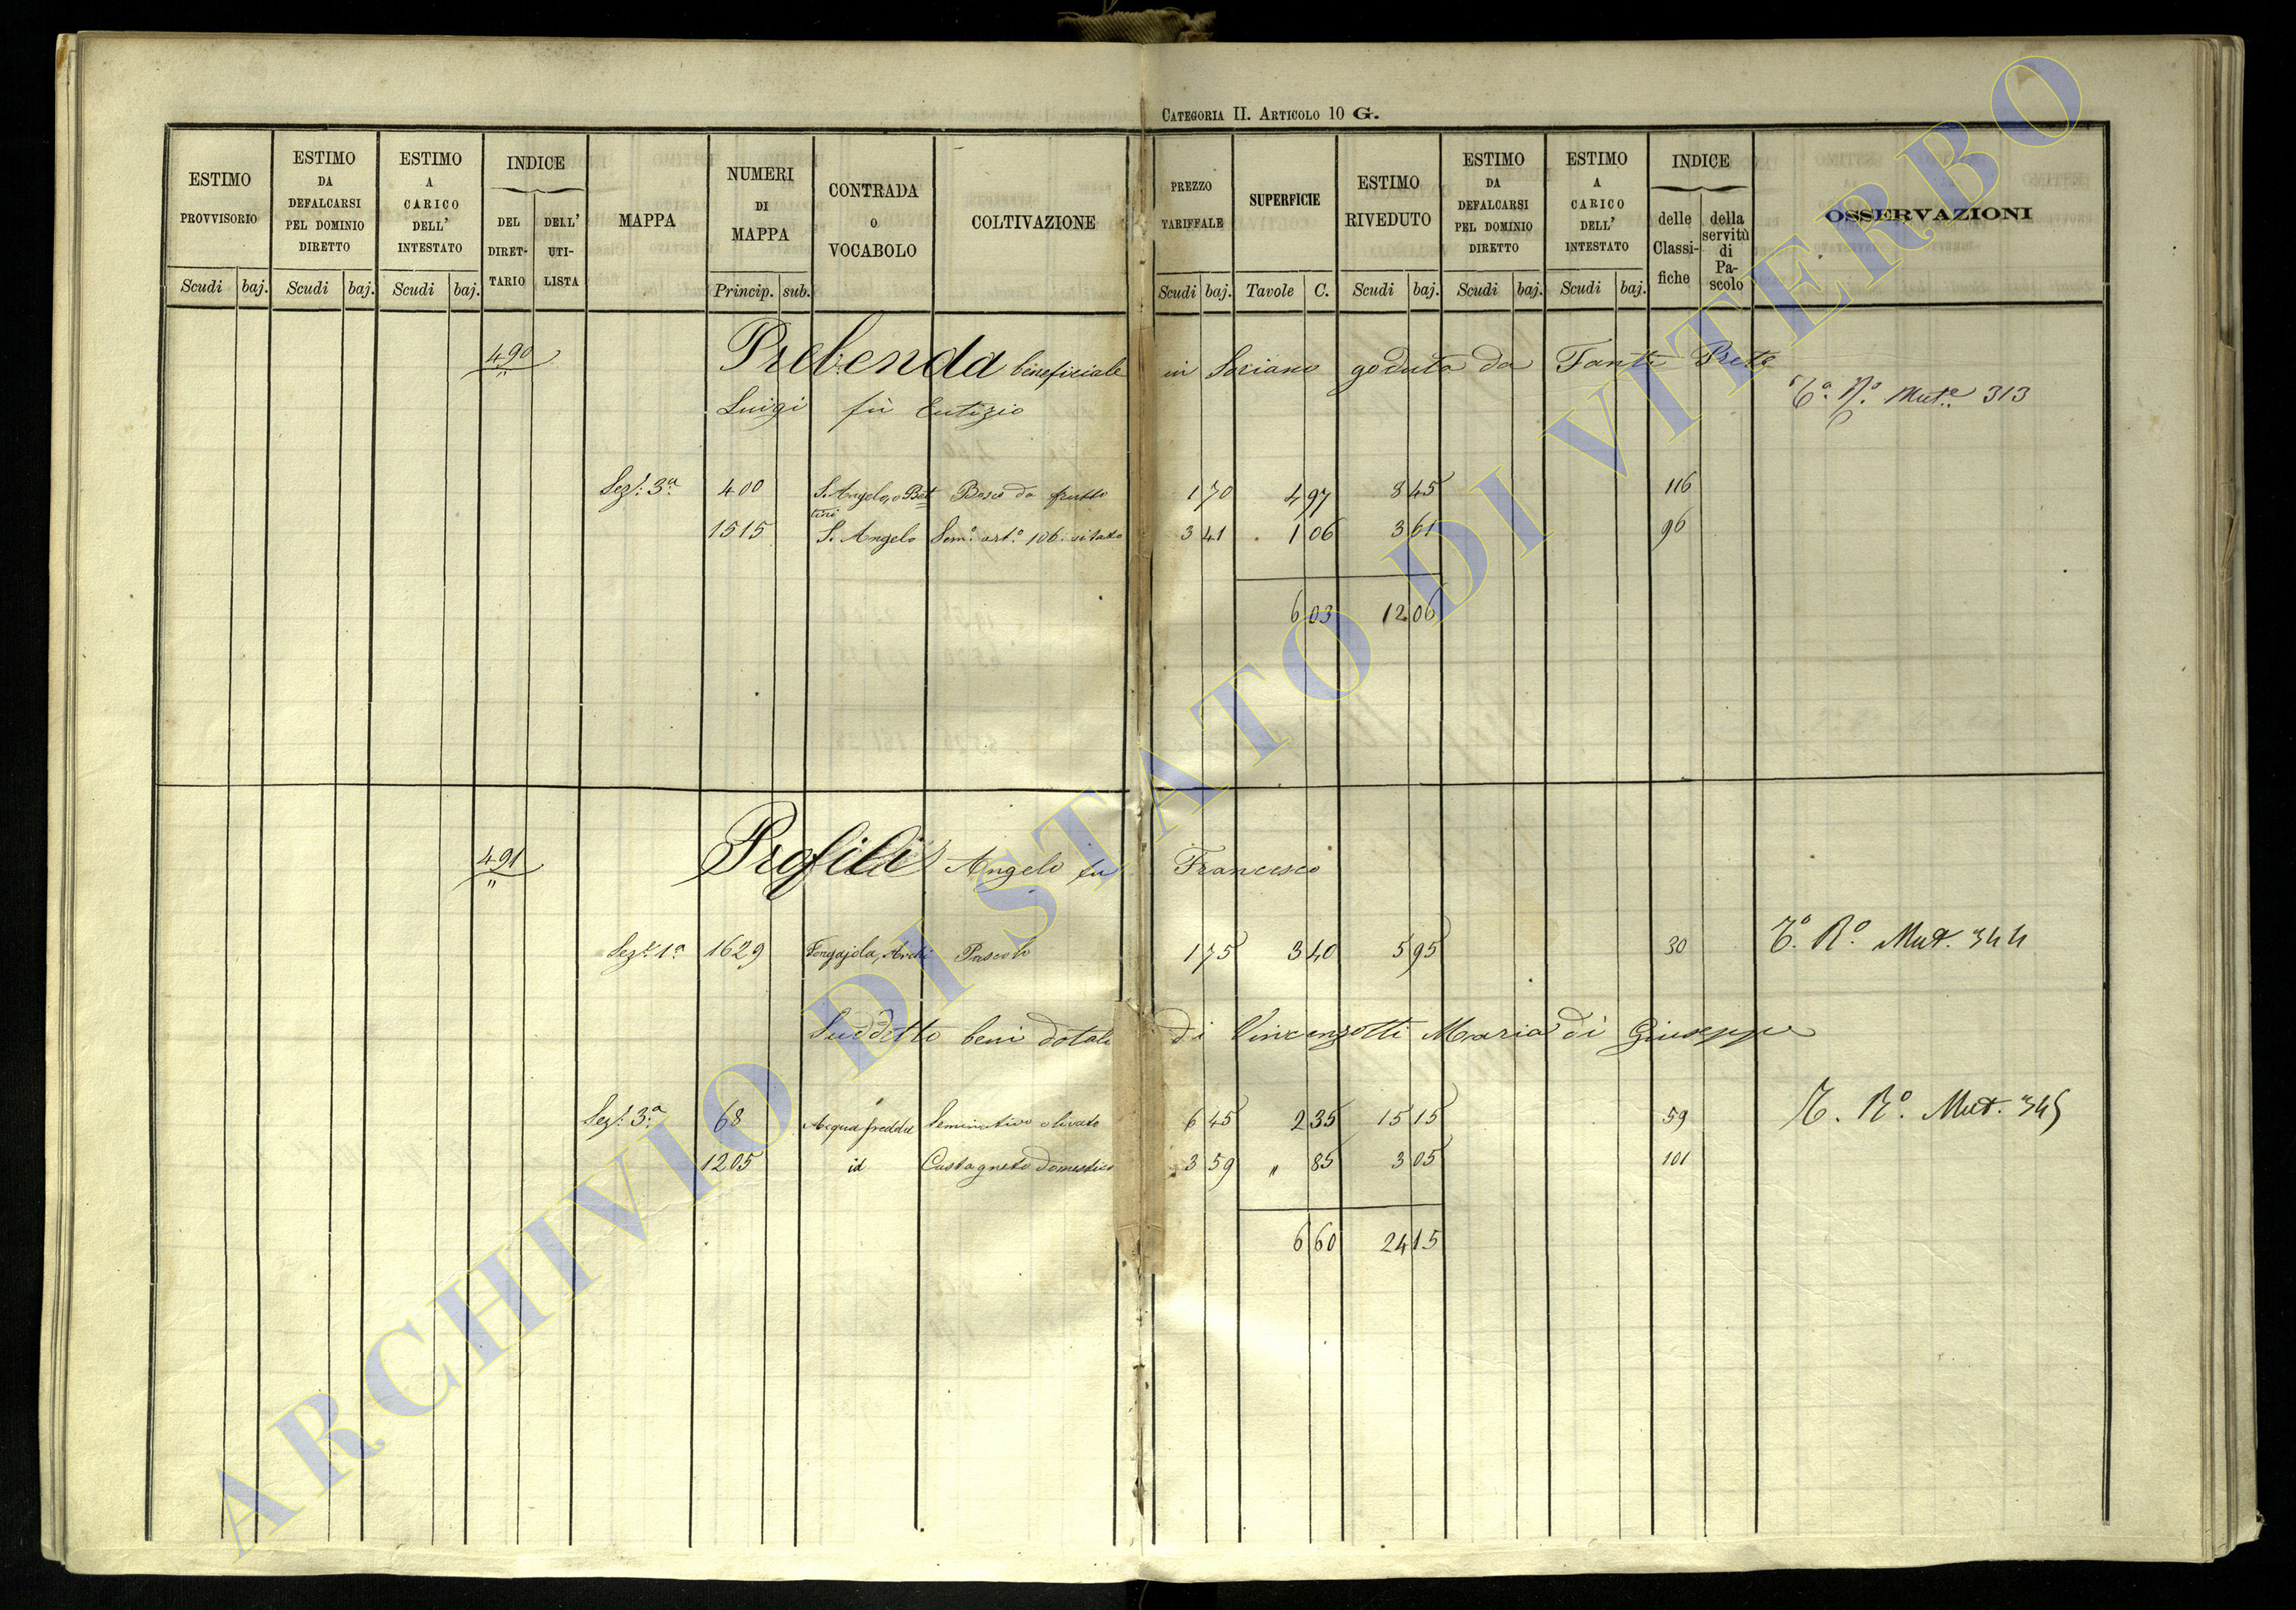 CATEGORIA II. ARTICOLO 10 G.
ESTIMO PROVVISORIO Scudi baj. ESTIMO DA DEFALCARSI PEL DOMINIO DIRETTO Scudi baj. ESTIMO A CARICO DELL' INTESTATO Scudi baj. INDICE DEL DIRETTARIO DELL' UTILISTA MAPPA NUMERI DI MAPPA Princip. sub. CONTRADA O VOCABOLO COLTIVAZIONE PREZZO TARIFFALE Scudi baj. SUPERFICIE Tavole C. ESTIMO RIVEDUTO Scudi baj. ESTIMO DA DEFALCARSI PEL DOMINIO DIRETTO Scudi baj. ESTIMO A CARICO DELL' INTESTATO Scudi baj. INDICE delle Classifiche della servitù di Pascolo OSSERVAZIONI
490 Prebenda beneficiale in Soriano goduta da Fanti Prete
Luigi fù Eutizio Mut.e 313
Sez. 3a 400 S. Angelo, o Bettini Bosco da frutto 1 70 4 97 8 45 116
1515 S. Angelo Sem.o art.o 106. vitato 3 41 1 06 3 61 96
6 03 12 06
491 Profili Angelo fu Francesco
Sez. 1a 1629 Pascolo 1 75 3 40 5 95 30 Mut. 344
Suddetto beni dotali di Vincenzotti Maria di Giuseppe
Sez. 3a 68 Acqua fredda Seminativo olivato 6 45 2 35 15 15 59 Mut. 345
1205 id Castagneto domestico 3 59 " 85 3 05 101
6 60 24 15
ARCHIVIO DI STATO DI VITERBO